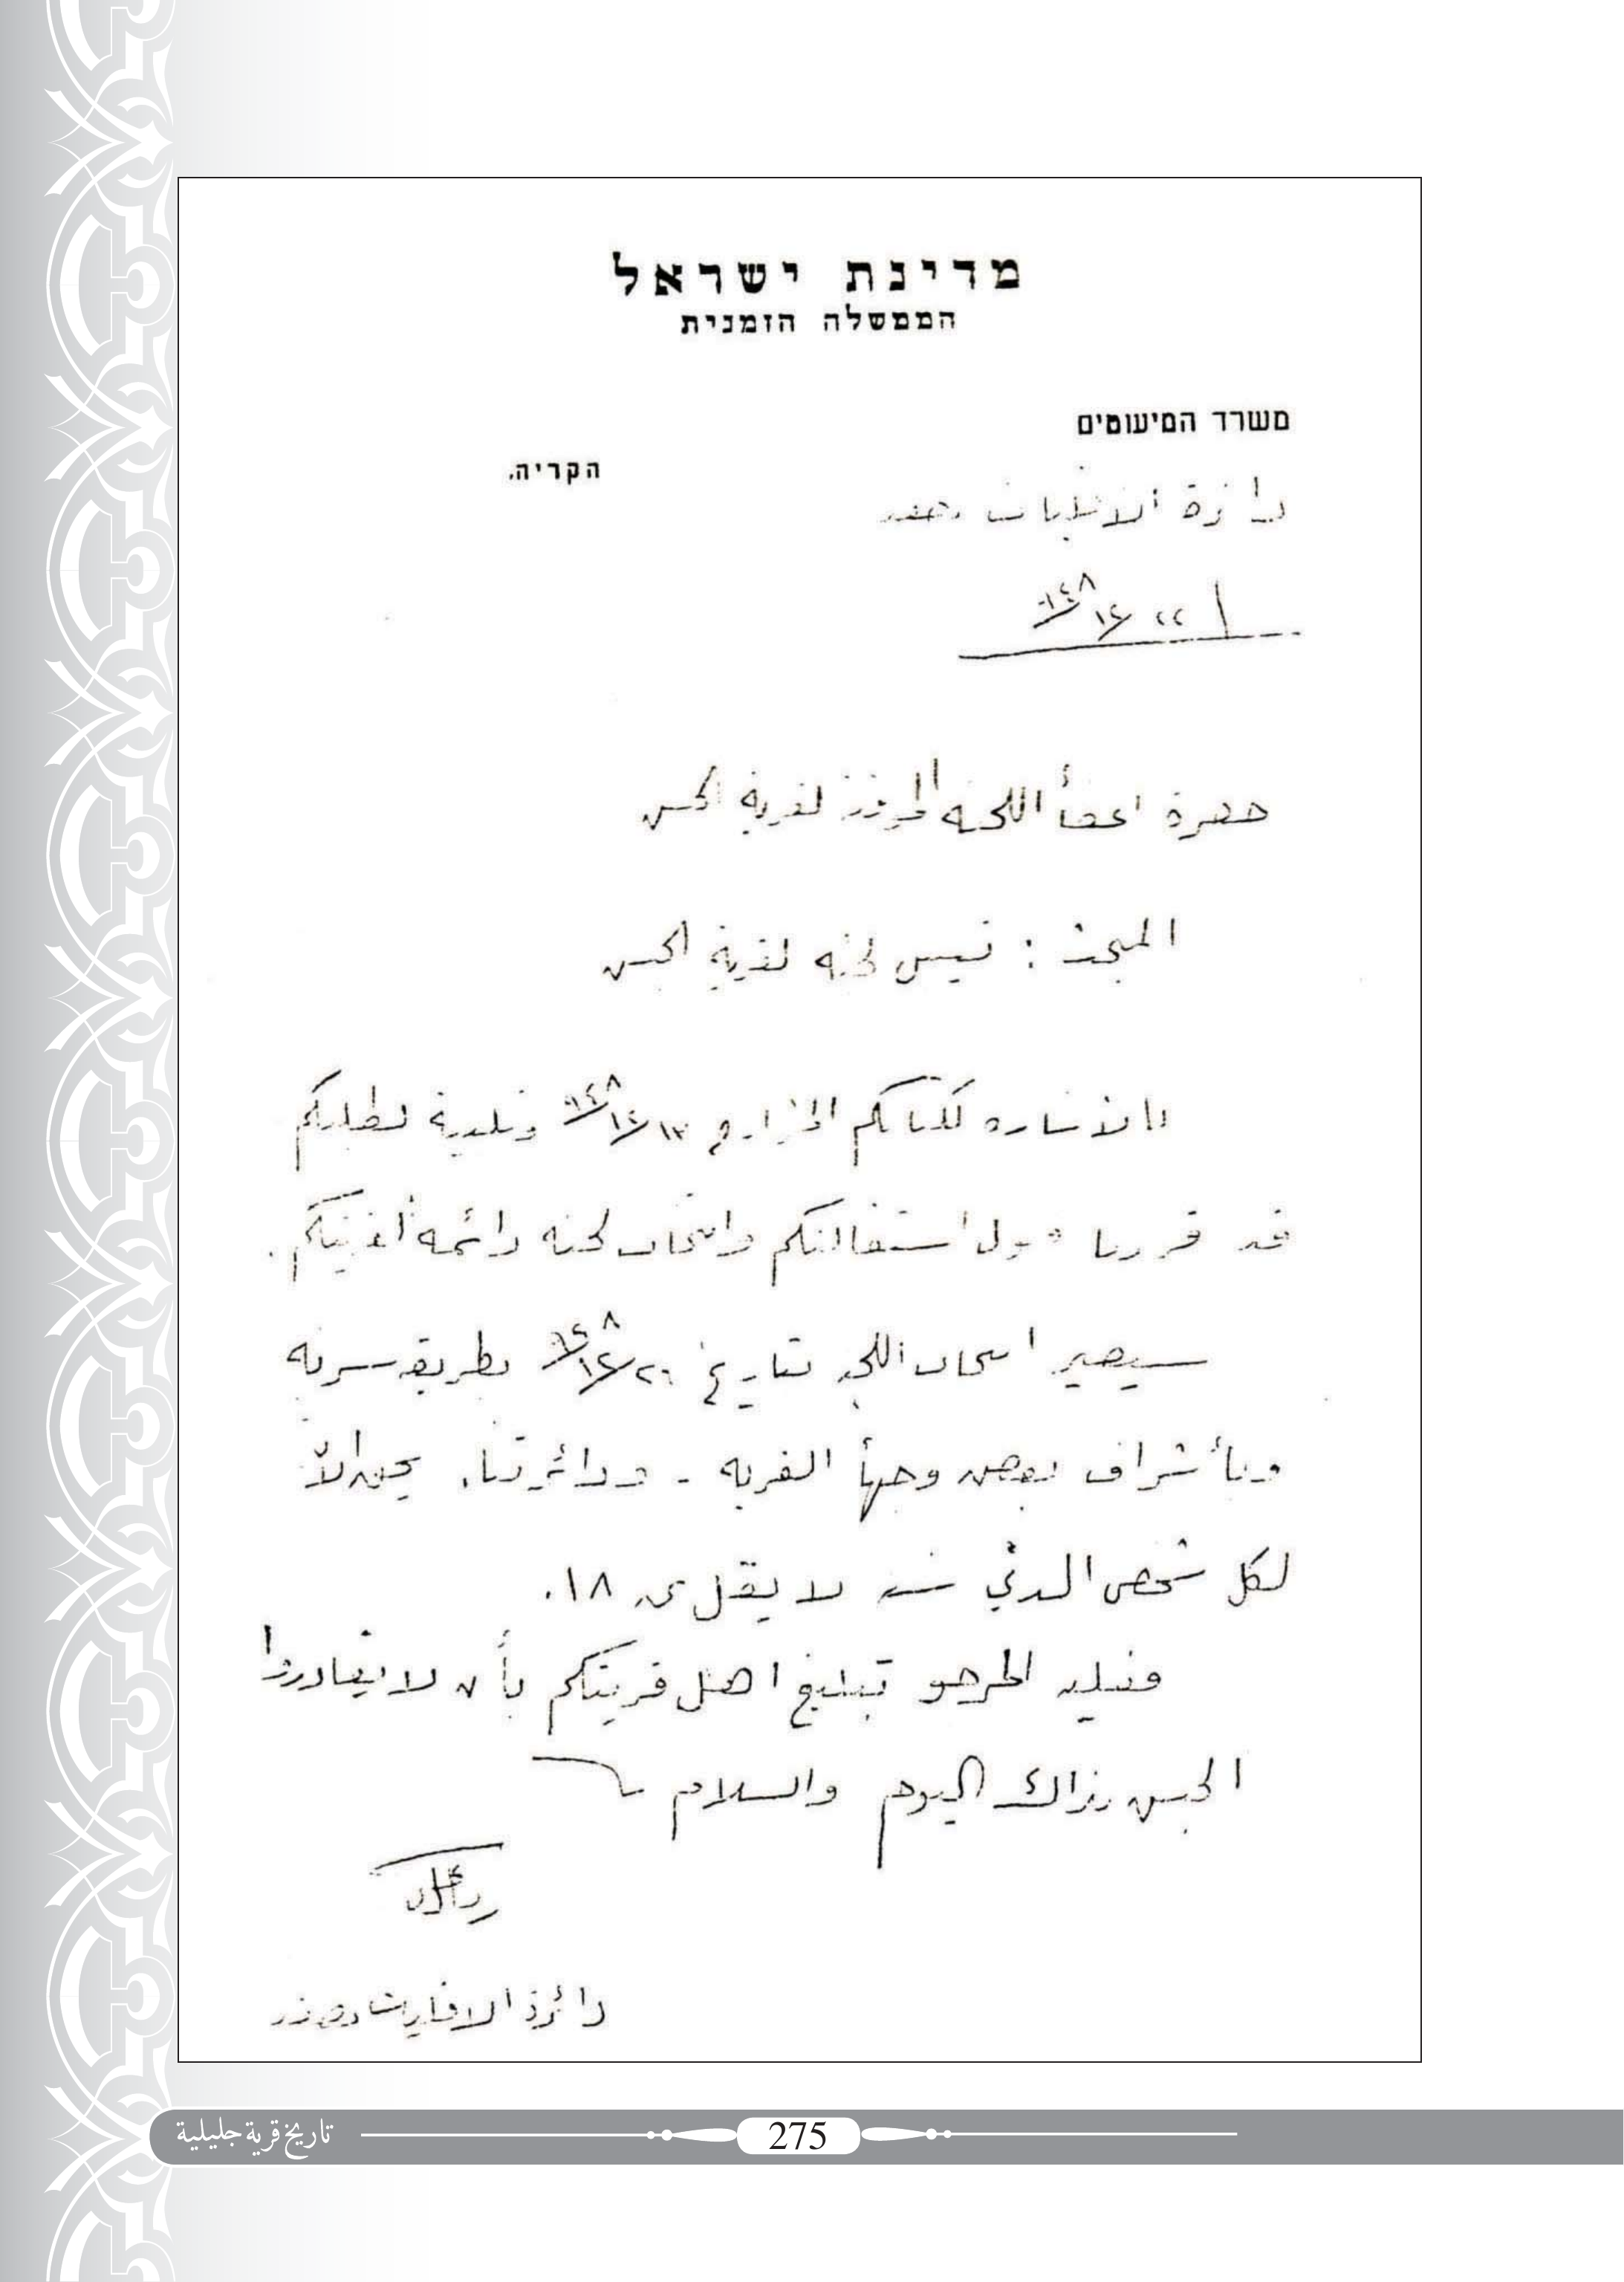 מדינת ישראל
הממשלה הזמנית
משרד המיעוטים
הקריה.
دائرة الاقليات صفد
٢٢/١٢/٩٤٨
حضرة اعضأ اللجنه الموقرة لقرية الجس
المبحث : تعيين لجنه لقرية الجس
بالاشاره لكتابكم المؤرخ ١٣/١٢/٩٤٨ وتلبية لطلبكم
قد قررنا قبول استقالتكم وانتخاب لجنه دائمه لقريتكم.
سيصير انتخاب اللجنه بتاريخ ٢٦/١٢/٩٤٨ بطريقه سريه
وبأشراف بعض وجهأ القريه - ودائرتنا.
لكل شخص الذي سنه لا يقل عن ١٨.
وعليه المرجو تبليغ اهل قريتكم بأن لا يغادروا
الجس بذاك اليوم والسلام
دائرة الاقليات صفد
275
تاريخ قرية جليلية